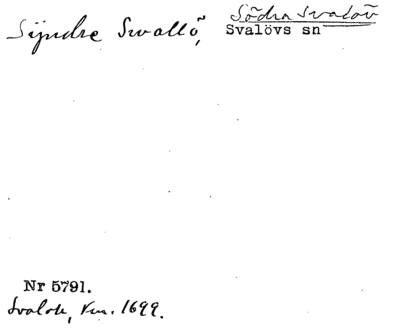 Södra Svalöv
Sijndre Swallö, Svalövs sn
Nr 5791.
Svalöv, Km. 1699.